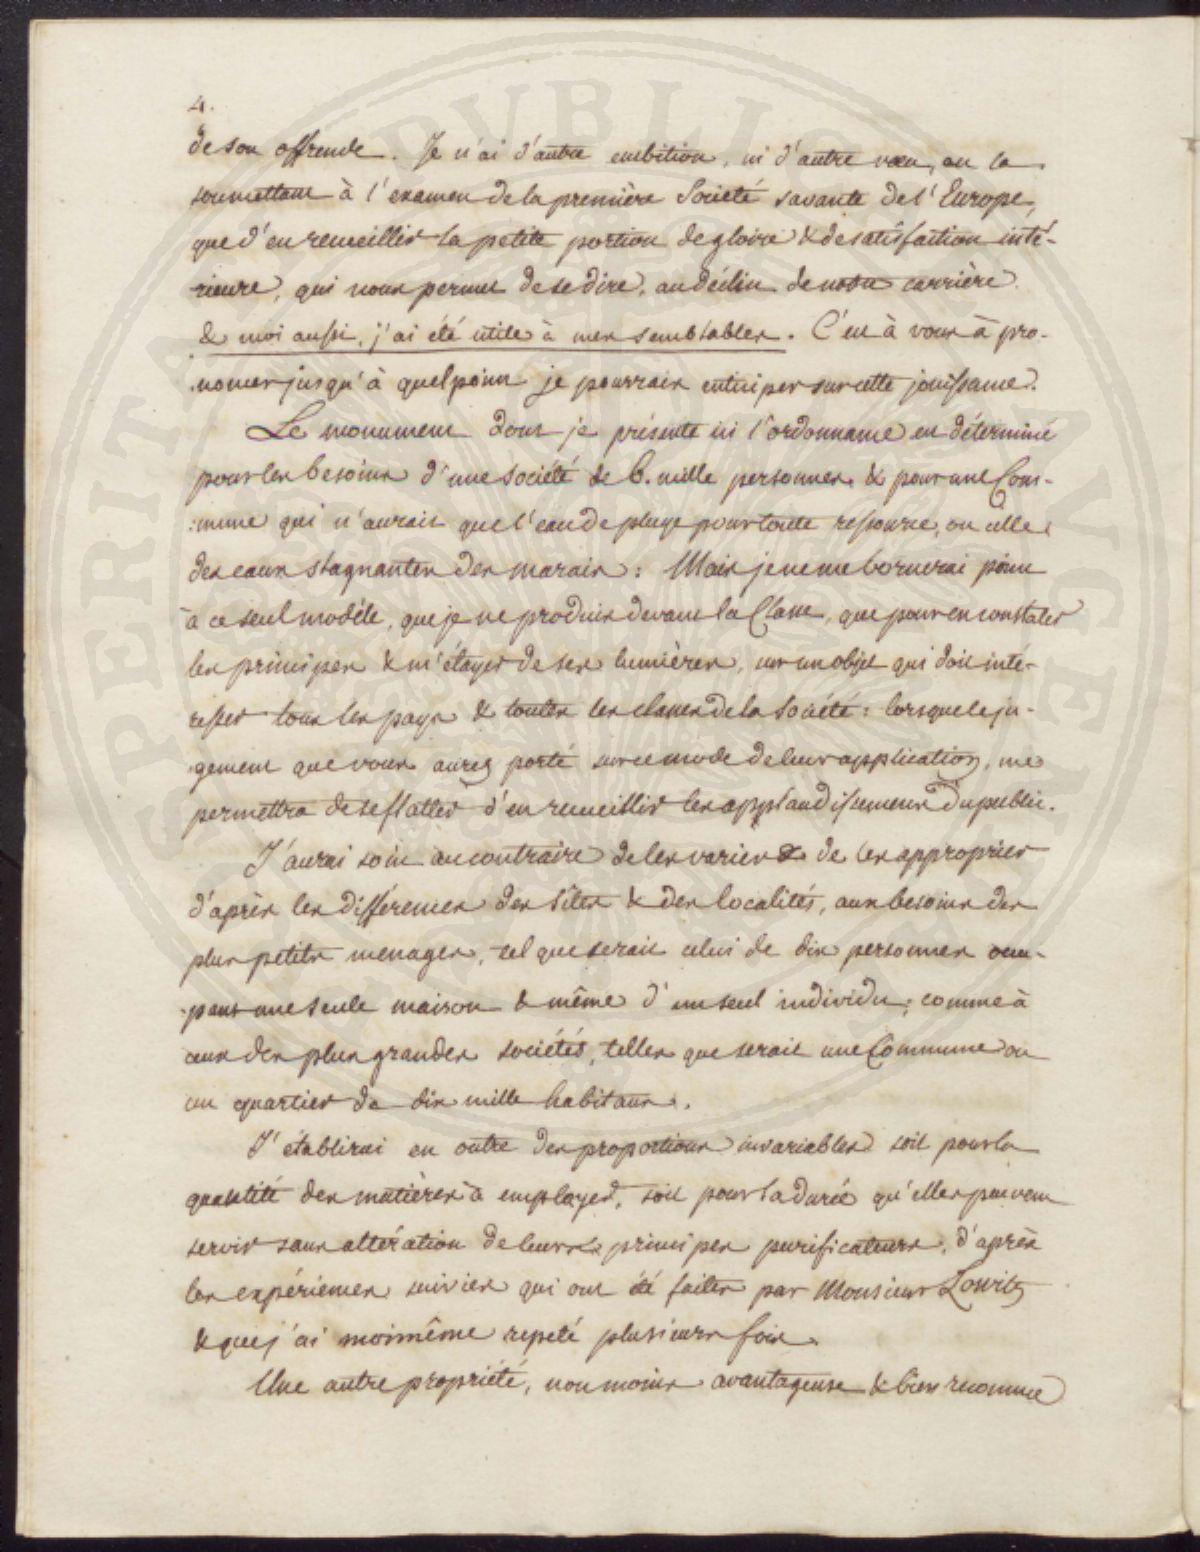 4.
de son offrende. Je n'ai d'autre ambition, ni d'autre vœu, en la
soumettant à l'examen de la première Société savante de l'Europe,
que d'en recueillir la petite portion de gloire & de satisfaction inté-
rieure, qui nous permet de se dire, au déclin de notre carrière
& moi aussi, j'ai été utile à mes semblables. C'est à vous à pro-
noncer jusqu'à quel point je pourrais anticiper sur cette jouissance.
Le monument dont je présente ici l'ordonnance est déterminé
pour les besoins d'une société de 6. mille personnes & pour une Com-
:mune qui n'aurait que l'eau de pluye pour toute ressource, ou celle
des eaux stagnantes des marais : Mais je ne me bornerai point
à ce seul modèle, que je ne produis devant la Classe, que pour en constater
les principes & m'étayer de ses lumières, sur un objet qui doit inté-
resser tous les pays & toutes les classes de la Société : lorsque le ju-
gement que vous aurez porté sur ce mode de leur application, me
permettra de se flatter d'en recueillir les applaudissemens du public.
J'aurai soin au contraire de les varier & de les approprier
d'après les différences des sîtes & des localités, aux besoins des
plus petits menages, tel que serait celui de dix personnes occu-
pant une seule maison & même d'un seul individu ; comme à
ceux des plus grandes sociétés, telles que serait une Commune ou
un quartier de dix mille habitans.
J'établirai en outre des proportions invariables soit pour la
quantité des matières à employer, soit pour la durée qu'elles peuvent
servir sans altération de leurs principes purificateurs, d'après
les expériences suivies qui ont été faites par Monsieur Lowitz
& que j'ai moimême repeté plusieurs fois.
Une autre propriété, non moins avantageuse & bien reconnue